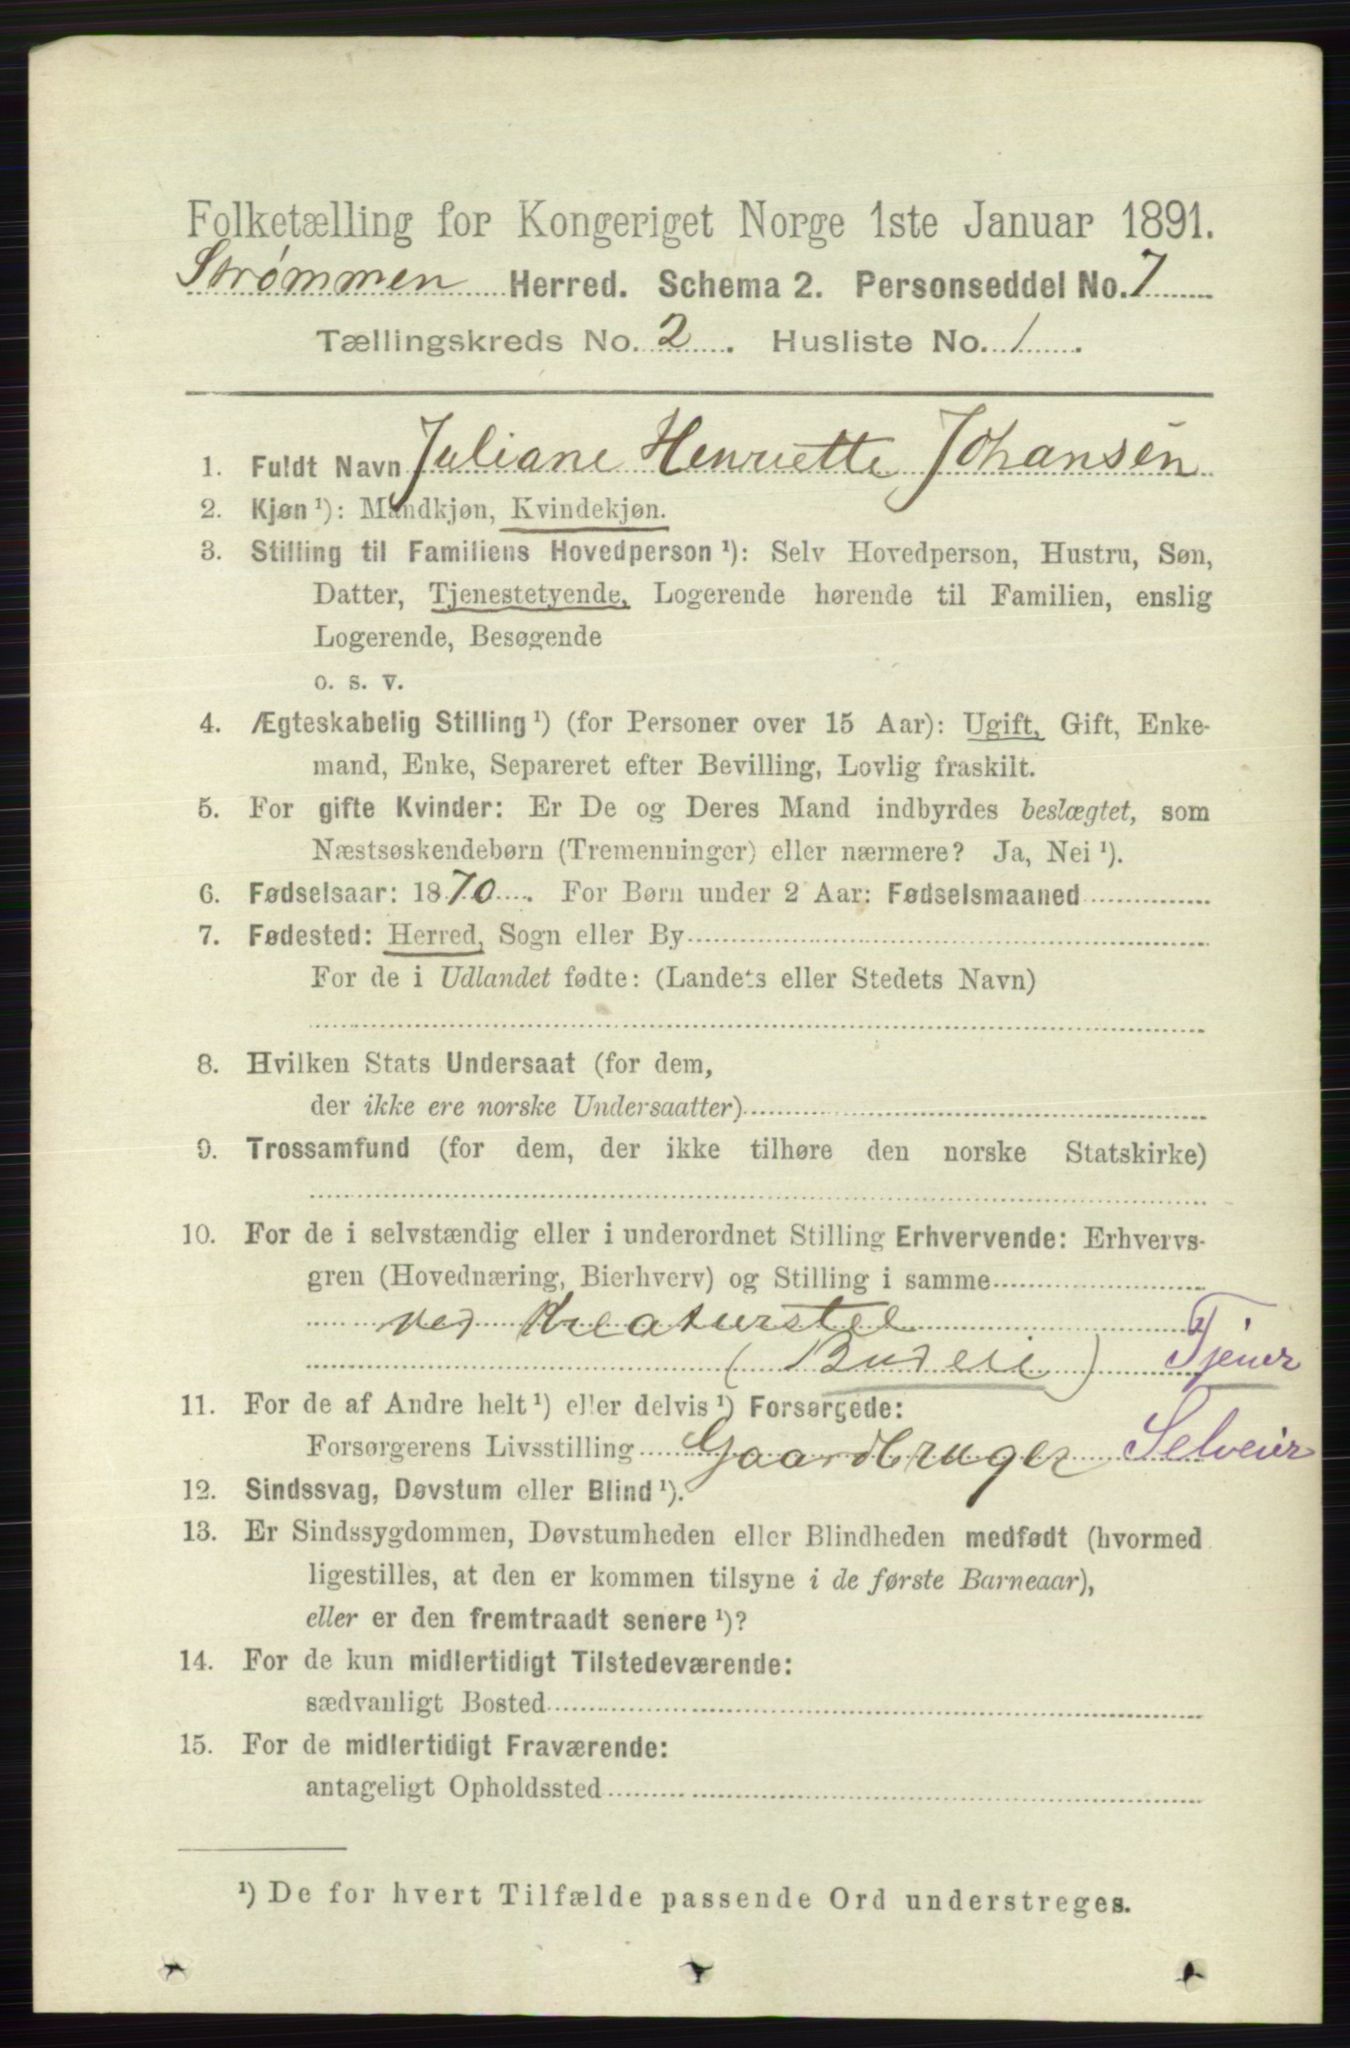 Folketælling for Kongeriget Norge 1ste Januar 1891.
Strømmen Herred. Schema 2. Personseddel No. 7
Tællingskreds No. 2. Husliste No. 1.
1. Fuldt Navn Juliane Henriette Johansen
2. Kjøn ¹): Mandkjøn, Kvindekjøn.
3. Stilling til Familiens Hovedperson ¹): Selv Hovedperson, Hustru, Søn,
Datter, Tjenestetyende, Logerende hørende til Familien, enslig
Logerende, Besøgende
o. s. v.
4. Ægteskabelig Stilling ¹) (for Personer over 15 Aar): Ugift, Gift, Enke-
mand, Enke, Separeret efter Bevilling, Lovlig fraskilt.
5. For gifte Kvinder: Er De og Deres Mand indbyrdes beslægtet, som
Næstsøskendebørn (Tremenninger) eller nærmere? Ja, Nei ¹).
6. Fødselsaar: 1870. For Børn under 2 Aar: Fødselsmaaned
7. Fødested: Herred, Sogn eller By
For de i Udlandet fødte: (Landets eller Stedets Navn)
8. Hvilken Stats Undersaat (for dem,
der ikke ere norske Undersaatter)
9. Trossamfund (for dem, der ikke tilhøre den norske Statskirke)
10. For de i selvstændig eller i underordnet Stilling Erhvervende: Erhvervs-
gren (Hovednæring, Bierhverv) og Stilling i samme
ved Kreaturstel
(Budeie) Tjener
11. For de af Andre helt ¹) eller delvis ¹) Forsørgede:
Forsørgerens Livsstilling Gaardbruger Selveier
12. Sindssvag, Døvstum eller Blind ¹).
13. Er Sindssygdommen, Døvstumheden eller Blindheden medfødt (hvormed
ligestilles, at den er kommen tilsyne i de første Barneaar),
eller er den fremtraadt senere ¹)?
14. For de kun midlertidigt Tilstedeværende:
sædvanligt Bosted
15. For de midlertidigt Fraværende:
antageligt Opholdssted
¹) De for hvert Tilfælde passende Ord understreges.